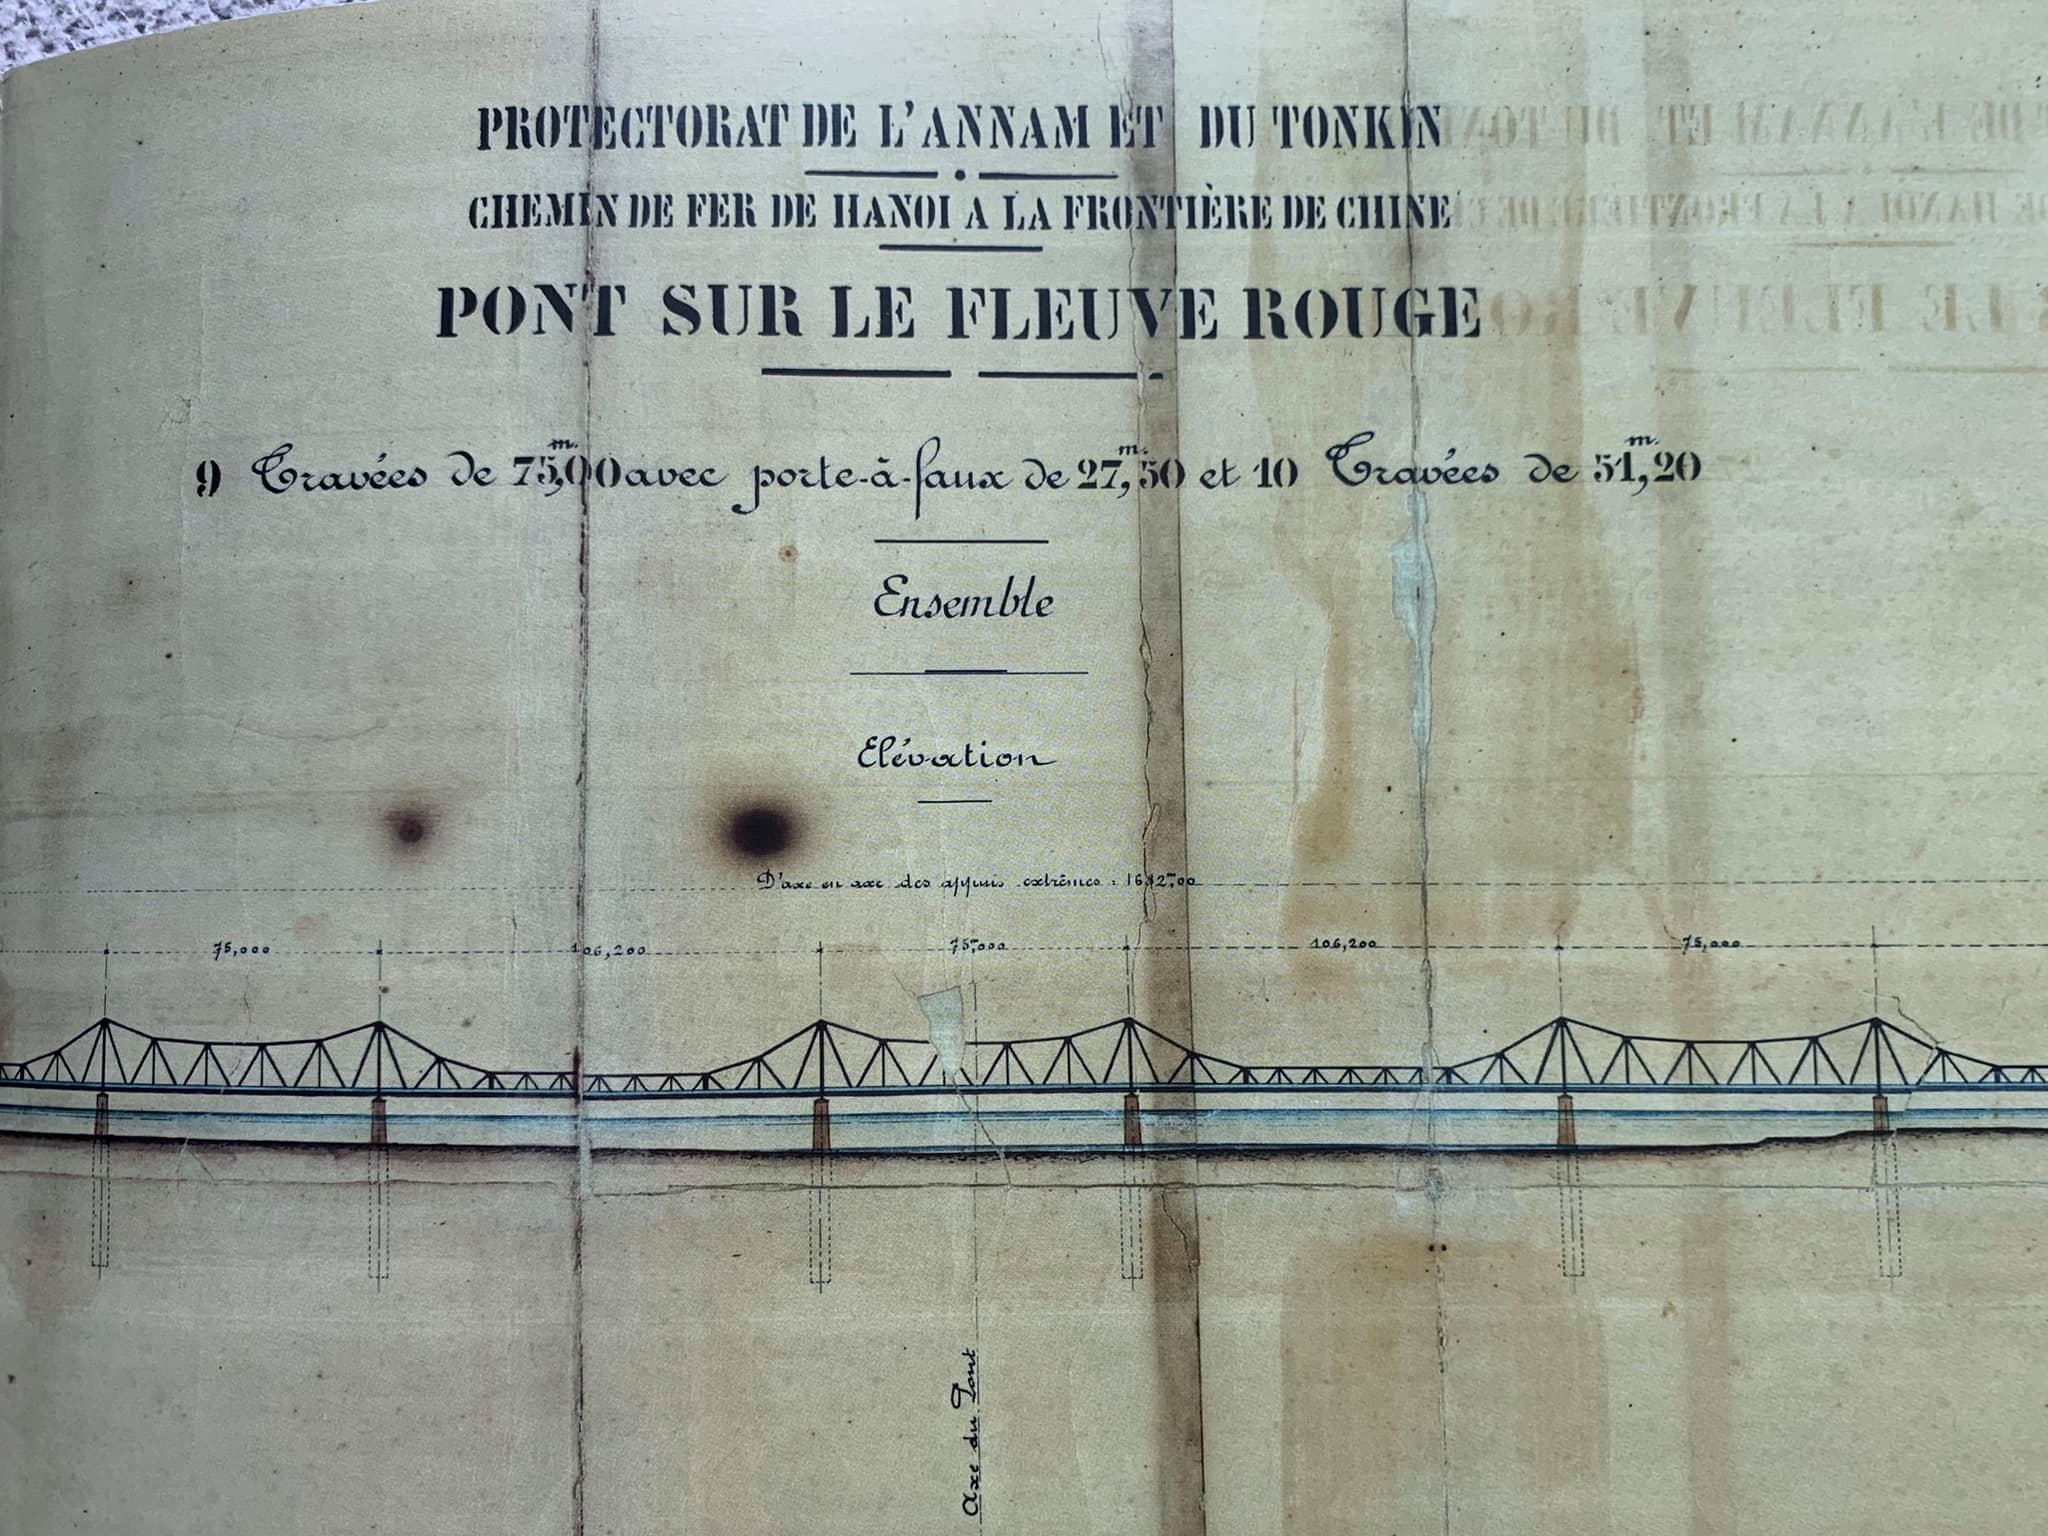 PROTECTORAT DE L'ANNAM ET DU TONKIN
CHEMIN DE FER DE HANOI A LA FRONTIÈRE DE CHINE
PONT SUR LE FLEUVE ROUGE
9 Travées de 75,00 m. avec porte-à-faux de 27,50 m. et 10 Travées de 51,20 m.
Ensemble
Elévation
D'axe en axe des appuis extrêmes : 1682m,00
75,000 106,200 75m,000 106,200 75,000
Axe du Pont